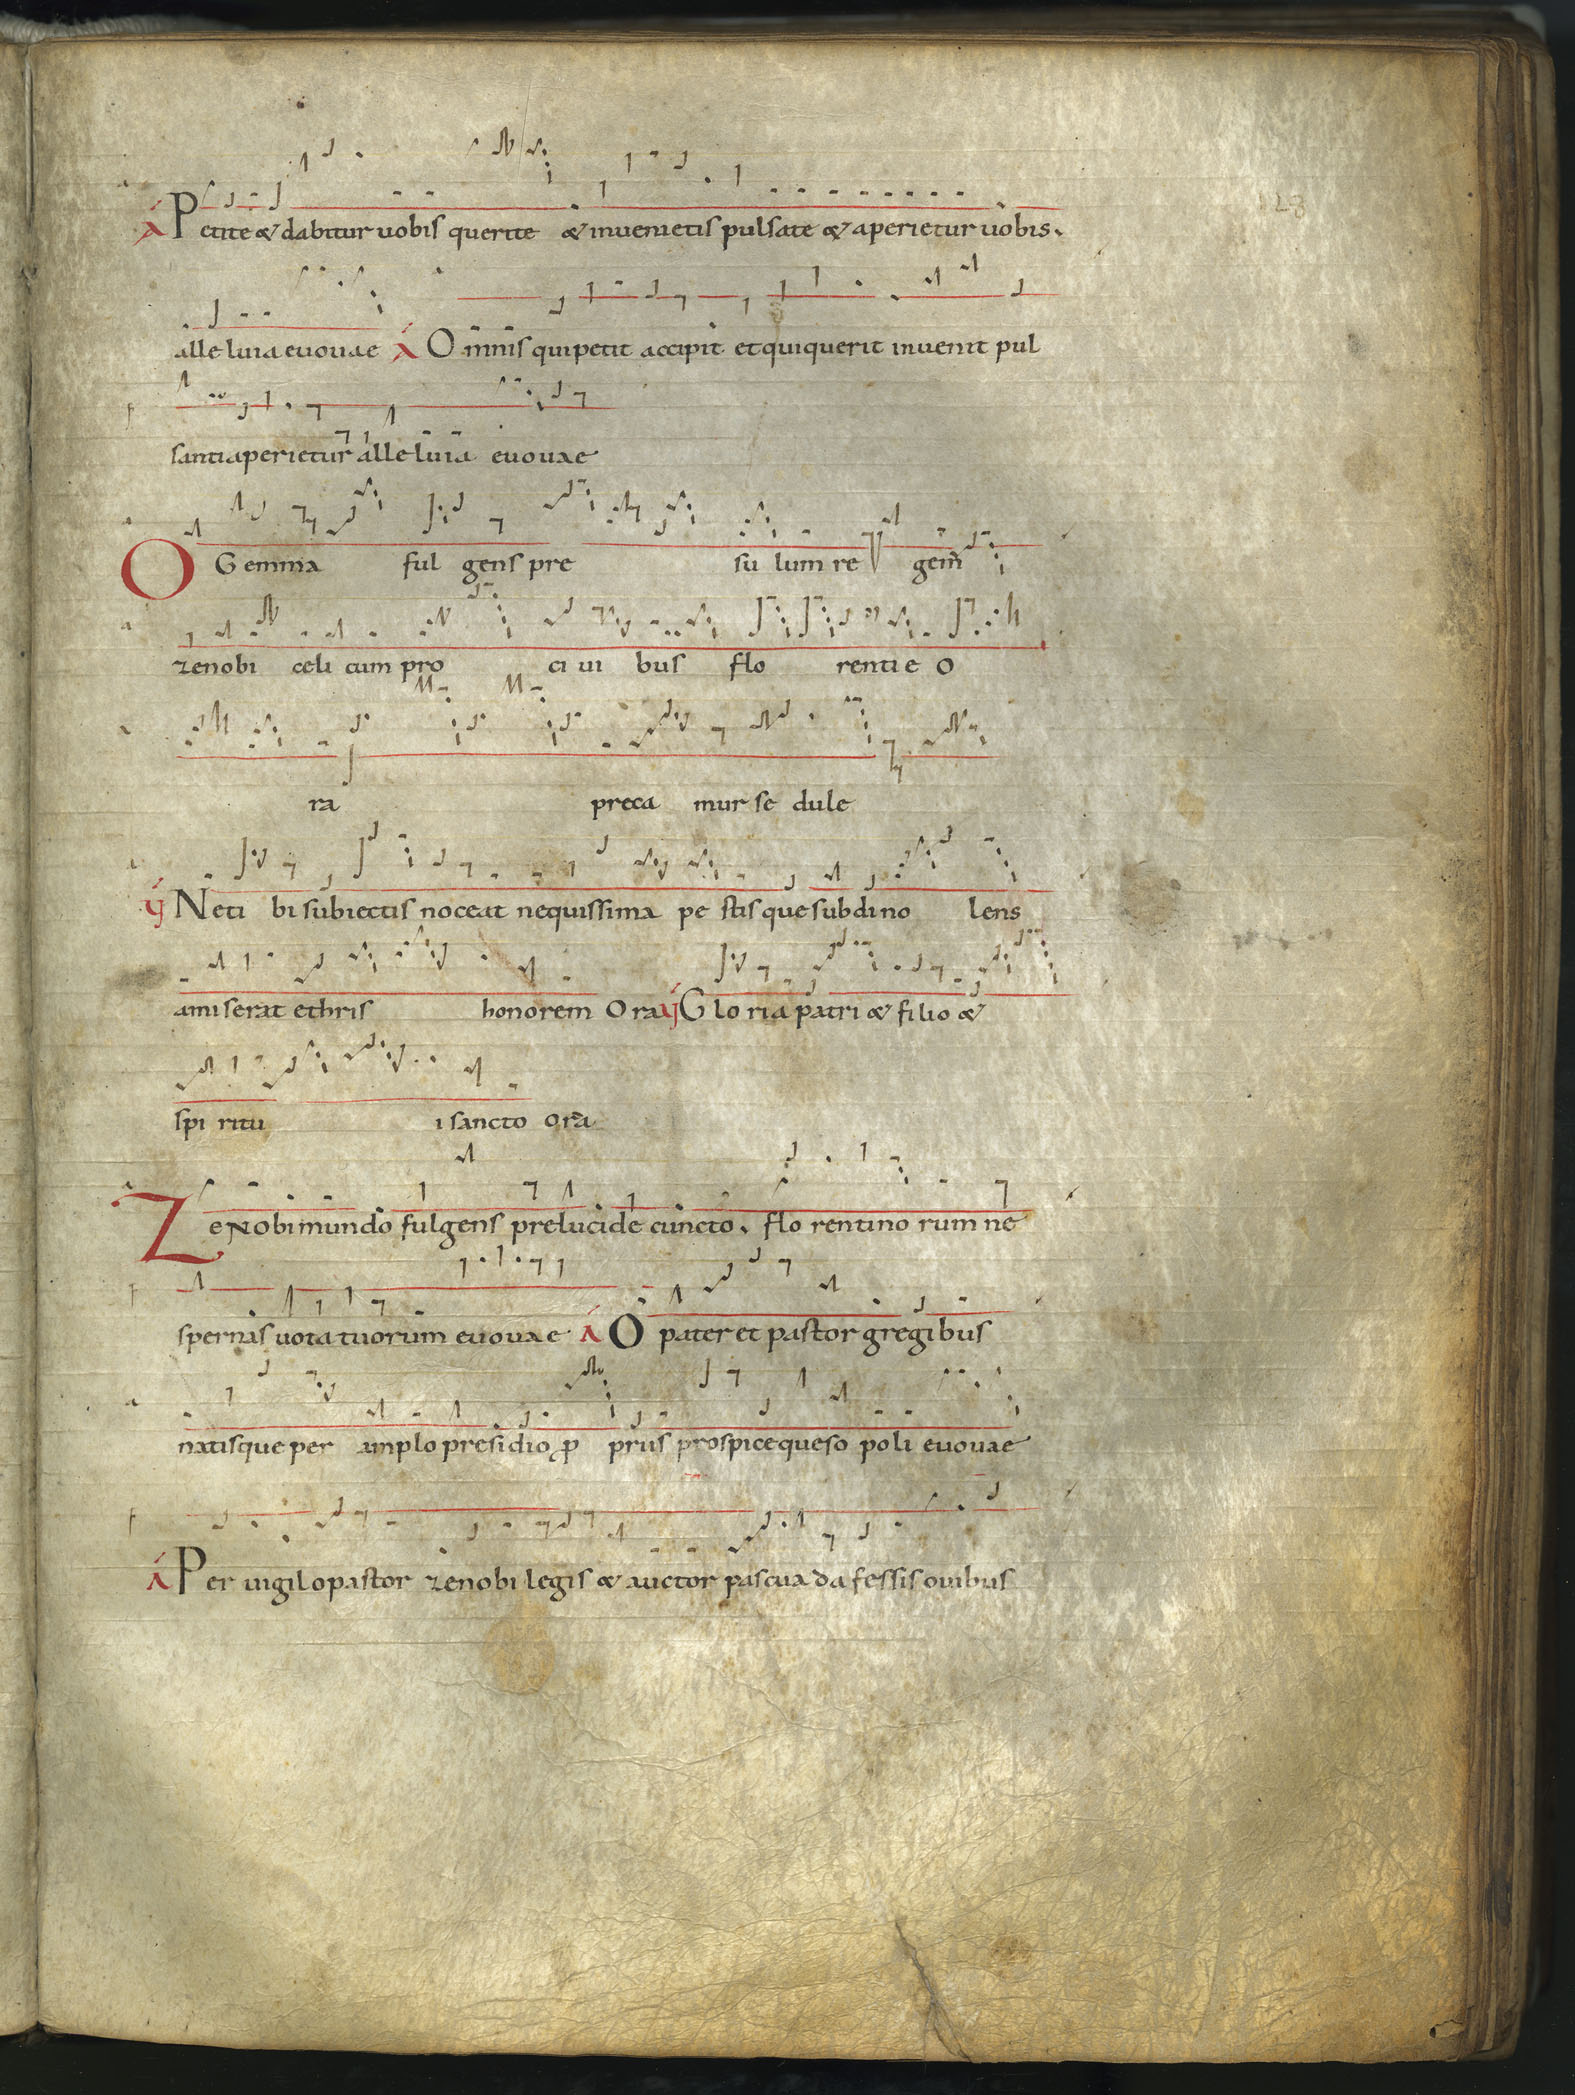 128
A Petite & dabitur uobis querite & inuenietis pulsate & aperietur uobis.
alleluia euouae A Omnis qui petit accipit et qui querit inuenit pul
santi aperietur alleluia euouae
O Gemma ful gens pre su lum re gem
zenobi celi cum pro ci ui bus flo rentie O
ra preca mur se dule
V Ne ti bi subiectis noceat nequissima pe stis que subdi no lens
amiserat ethris honorem Ora V Glo ria patri & filio &
spi ritu i sancto ora
Zenobi mundo fulgens prelucide cuncto. flo rentino rum ne
spernas uota tuorum euouae A O pater et pastor gregibus
natisque per amplo presidio prius prospice queso poli euouae
A Per uigil o pastor zenobi legis & auctor pascua da fessis ouibus